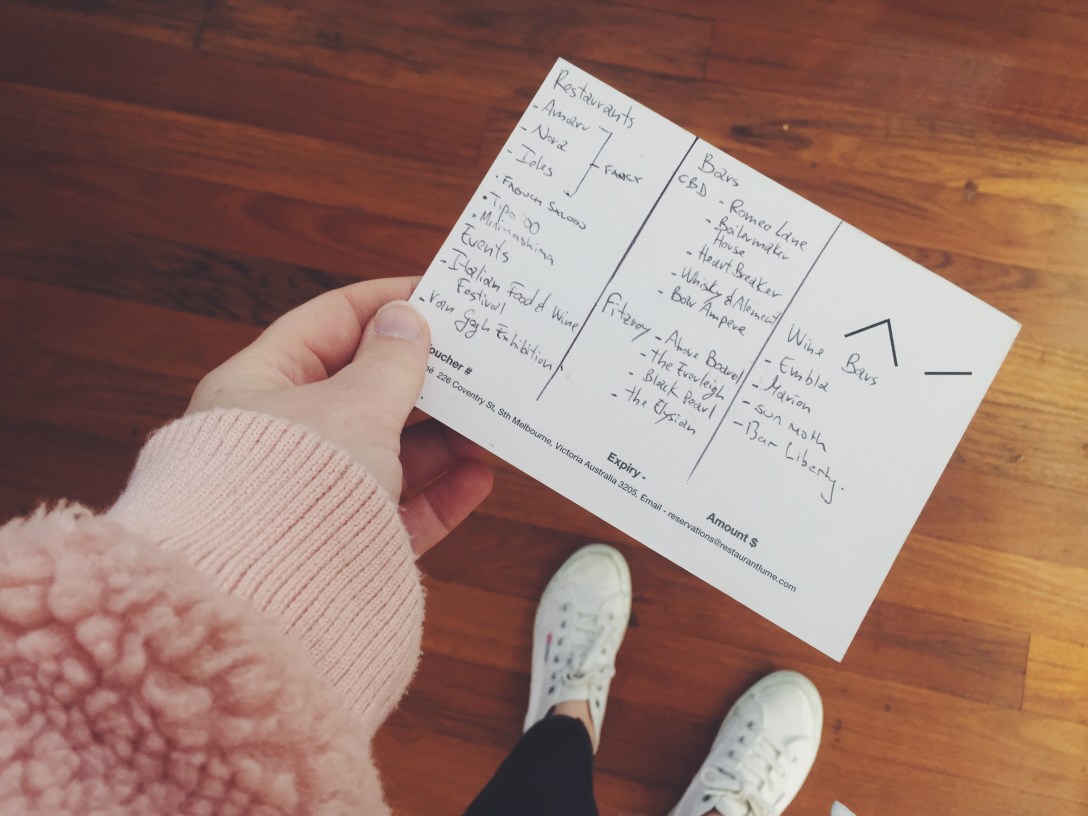 Restaurants
- Amaru
- Nora
- Ides
FANCY
• FRENCH SALOON
• Tipo '00
• Minimashima
Events
- Italian Food & Wine
Festival
- Van Gogh Exhibition
Bars
CBD - Romeo Lane
- Boilermaker
House
- HeartBreaker
- Whisky & Alement
- Bar Ampere
Fitzroy - Above Board
- the Everleigh
- Black Pearl
- the Elysian
Wine Bars
- Embla
- Marion
- sun moth
- Bar Liberty.
oucher #
Expiry -
Amount $
226 Coventry St, Sth Melbourne, Victoria Australia 3205. Email - reservations@restaurantlume.com